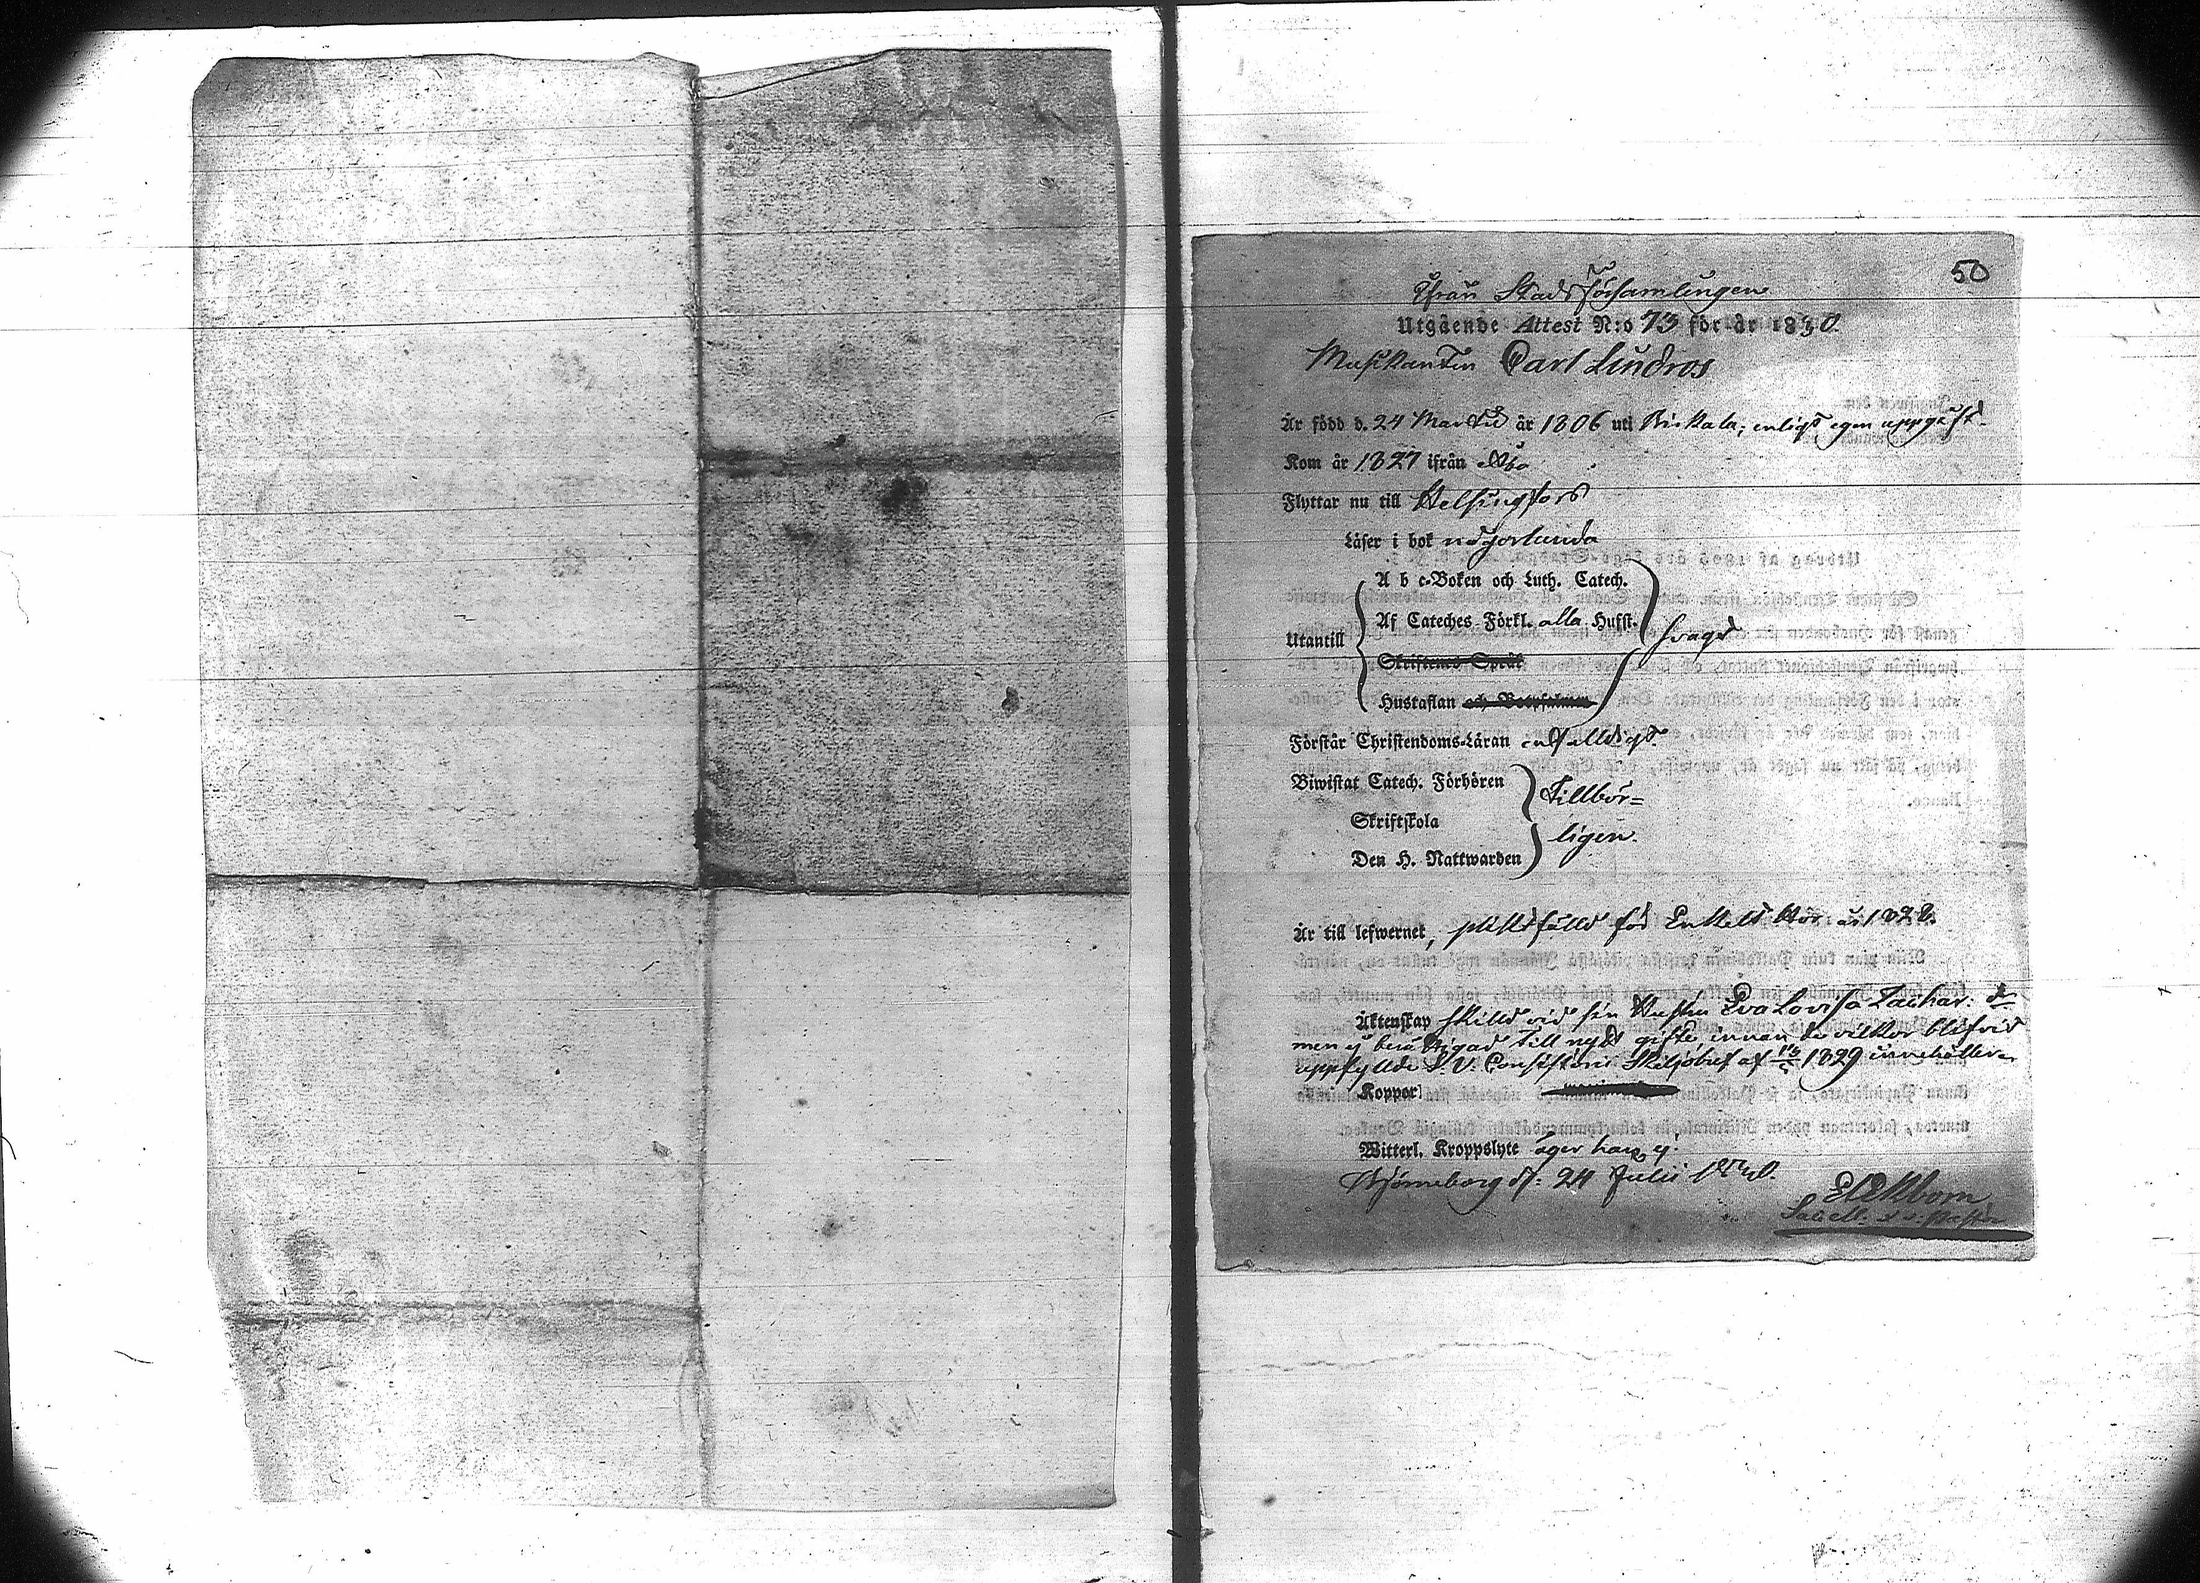 50
Ifrån Stadsförsamlingen
Utgående Attest N:o 73 för år 1830.
Musikanten Carl Lindros
Är född d. 24 Martii år 1806 uti Birkala, enligt egen uppgift.
Kom år 1827 ifrån Åbo
Flyttar nu till Helsingfors
Läser i bok någorlunda
A b c-Boken och Luth. Catech.
Af Cateches Förkl. alla Hufst.
Utantill svagt
Skriftenes Språk
Hustaflan och Botpsalmen
Förstår Christendoms-Läran enfaldigt.
Biwistat Catech. Förhören
Skriftskola
Den H. Nattwarden
tillbör=
ligen.
Är till lefwernet, pliktfälld för Enkelt Hor år 1828.
Äktenskap skilld vid sin Hustru Eva Lovisa Zachar: dr
men ej berättigad till nytt gifte, innan de vilkor blifvit
uppfyllde S. V. Consistorii Skiljobref af 1829 innehåller
Koppor
Witterl. Kroppslyte äger han ej.
Björneborg d: 24 Julii 1830.
Ekbom